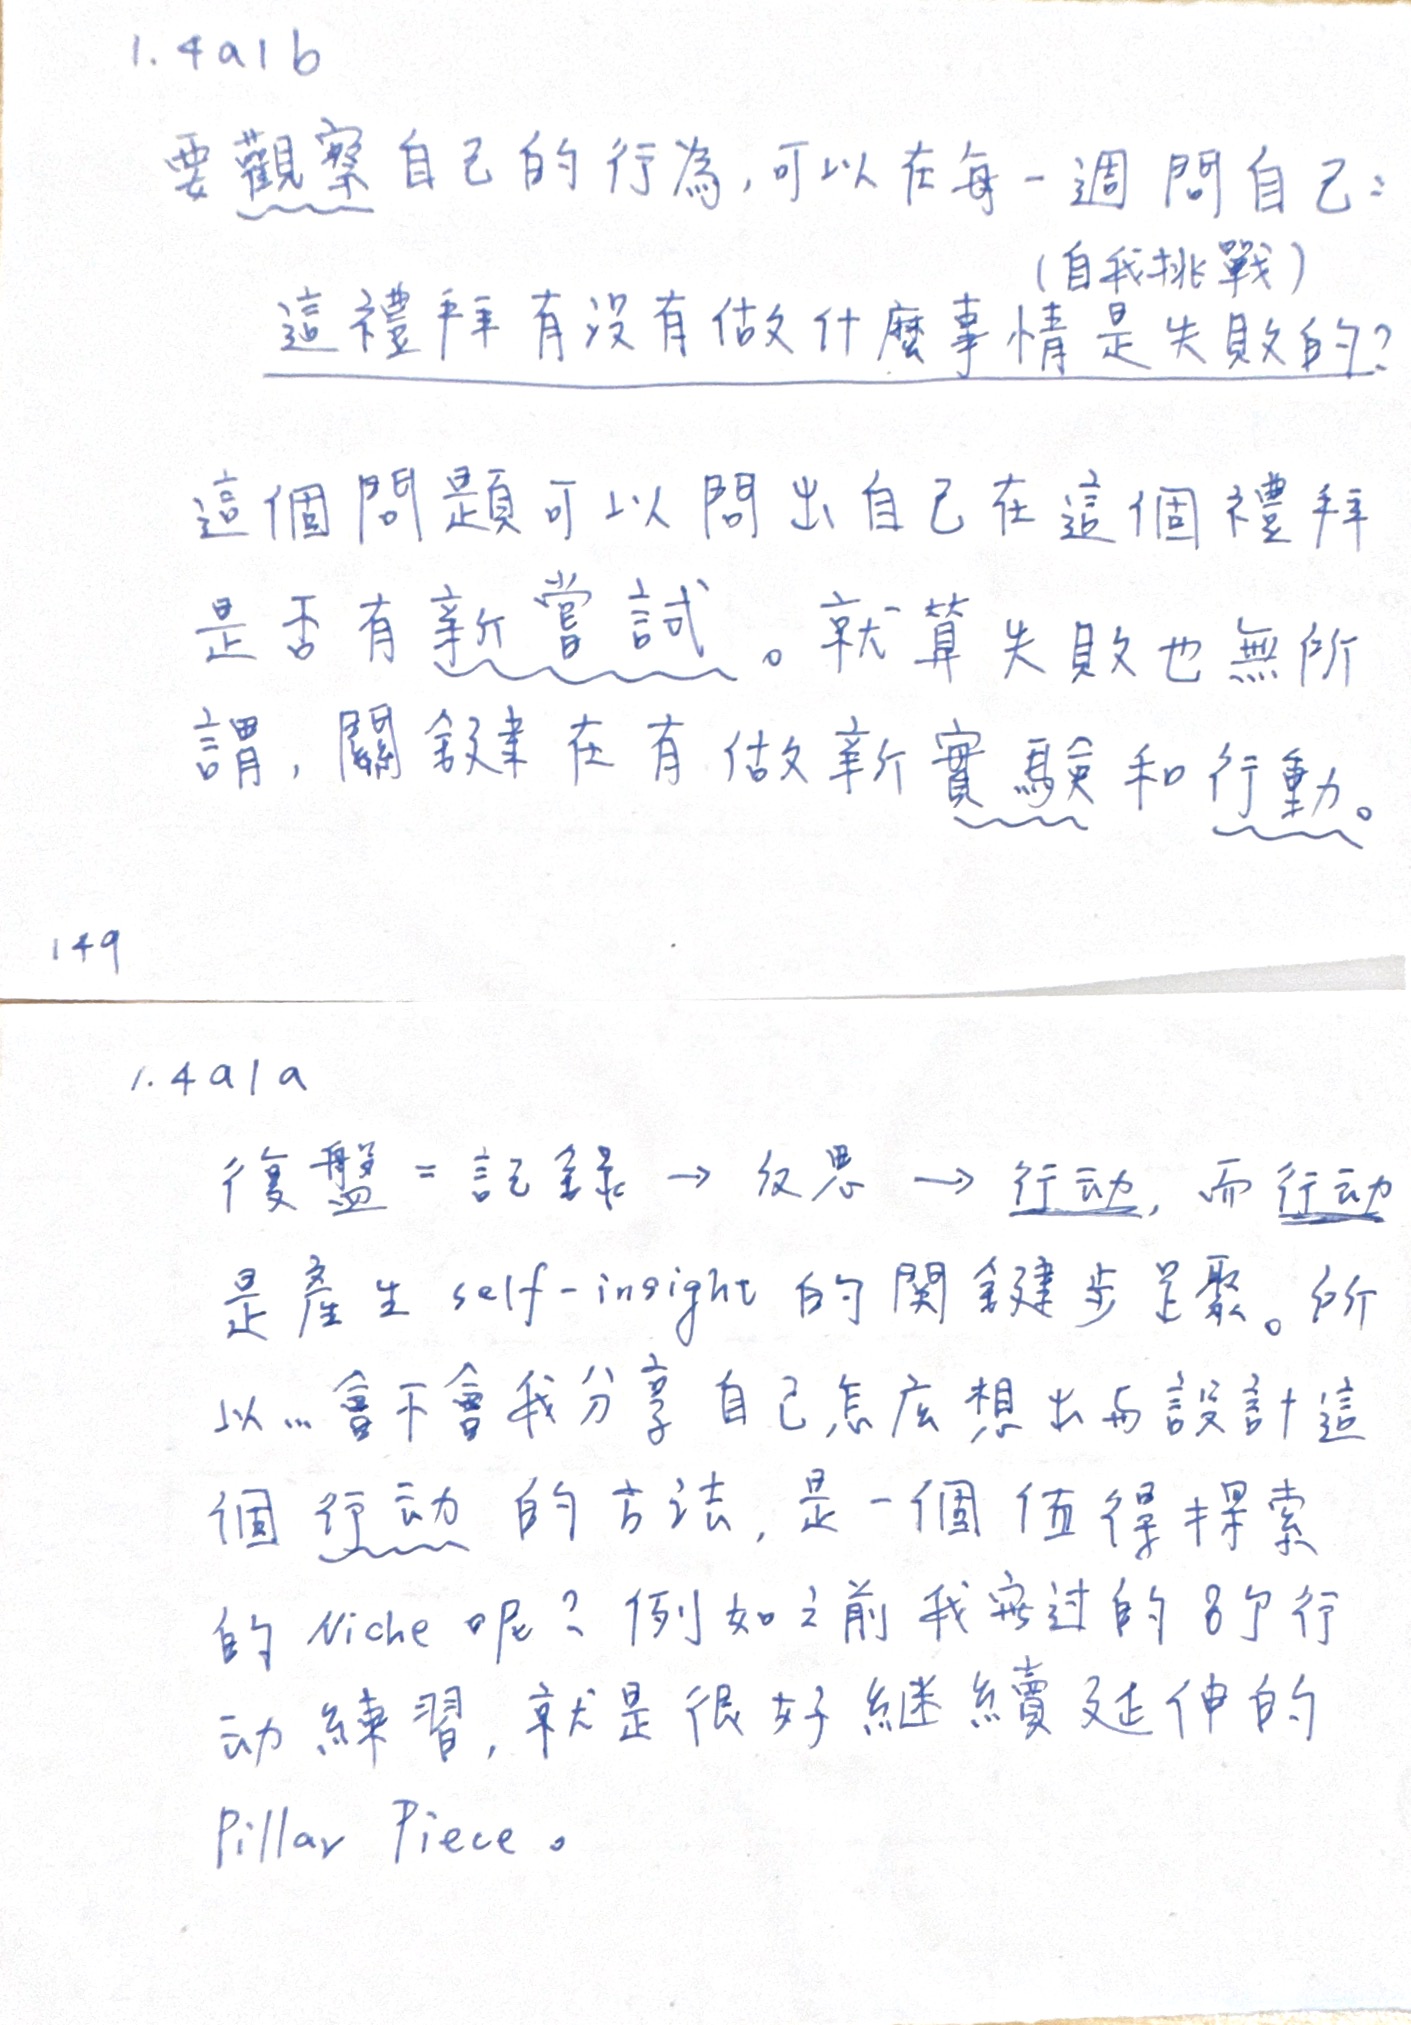 1.4a1b
要觀察自己的行為,可以在每一週問自己:
(自我挑戰)
這禮拜有沒有做什麼事情是失敗的?
這個問題可以問出自己在這個禮拜
是否有新嘗試。就算失敗也無所
謂,關鍵在有做新實驗和行動。
149
1.4a1a
復盤=記錄→反思→行动,而行动
是產生self-insight的関鍵步足聚。所
以...會不會我分享自己怎麼想出与設計這
個行动的方法,是一個值得探索
的Niche呢?例如之前我寫过的8个行
动練習,就是很好継續延伸的
Pillar Piece。